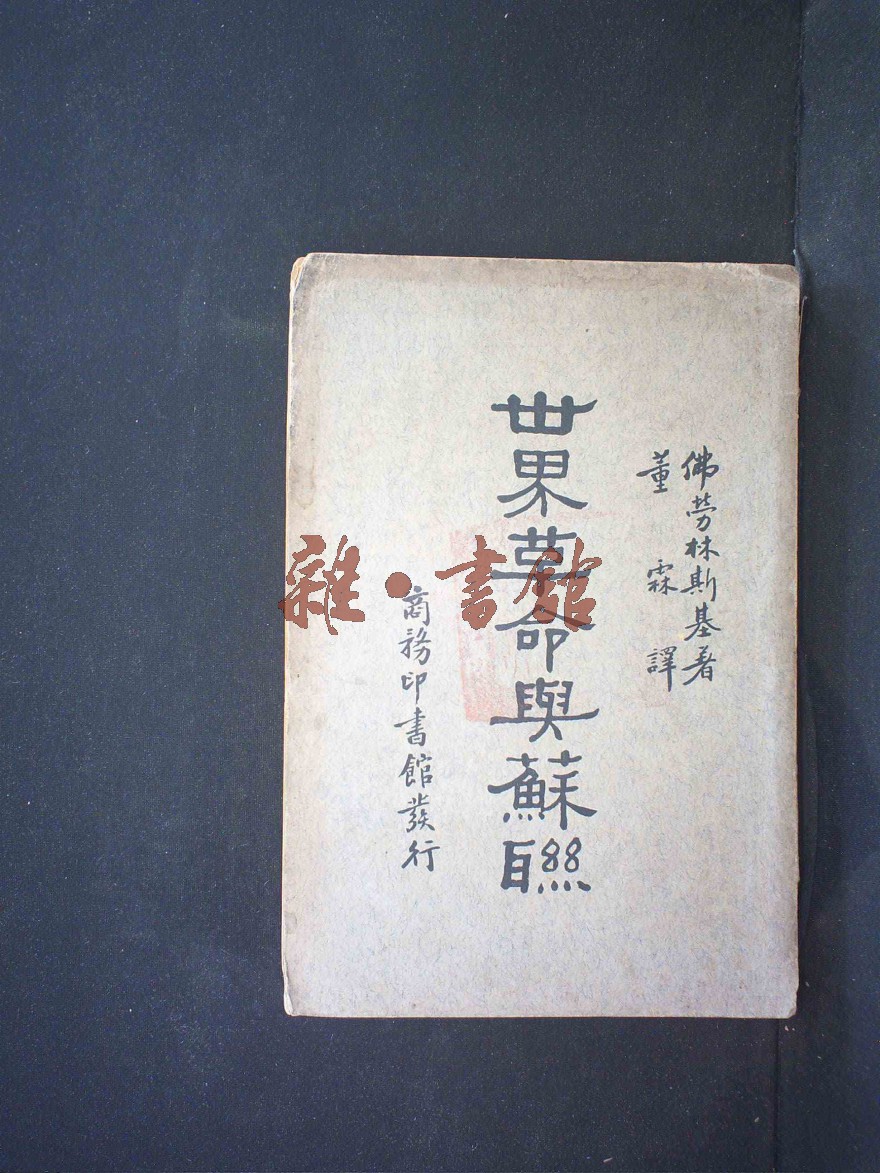 佛勞林斯基著
董霖譯
世界革命與蘇聯
商務印書館發行
雜·書館